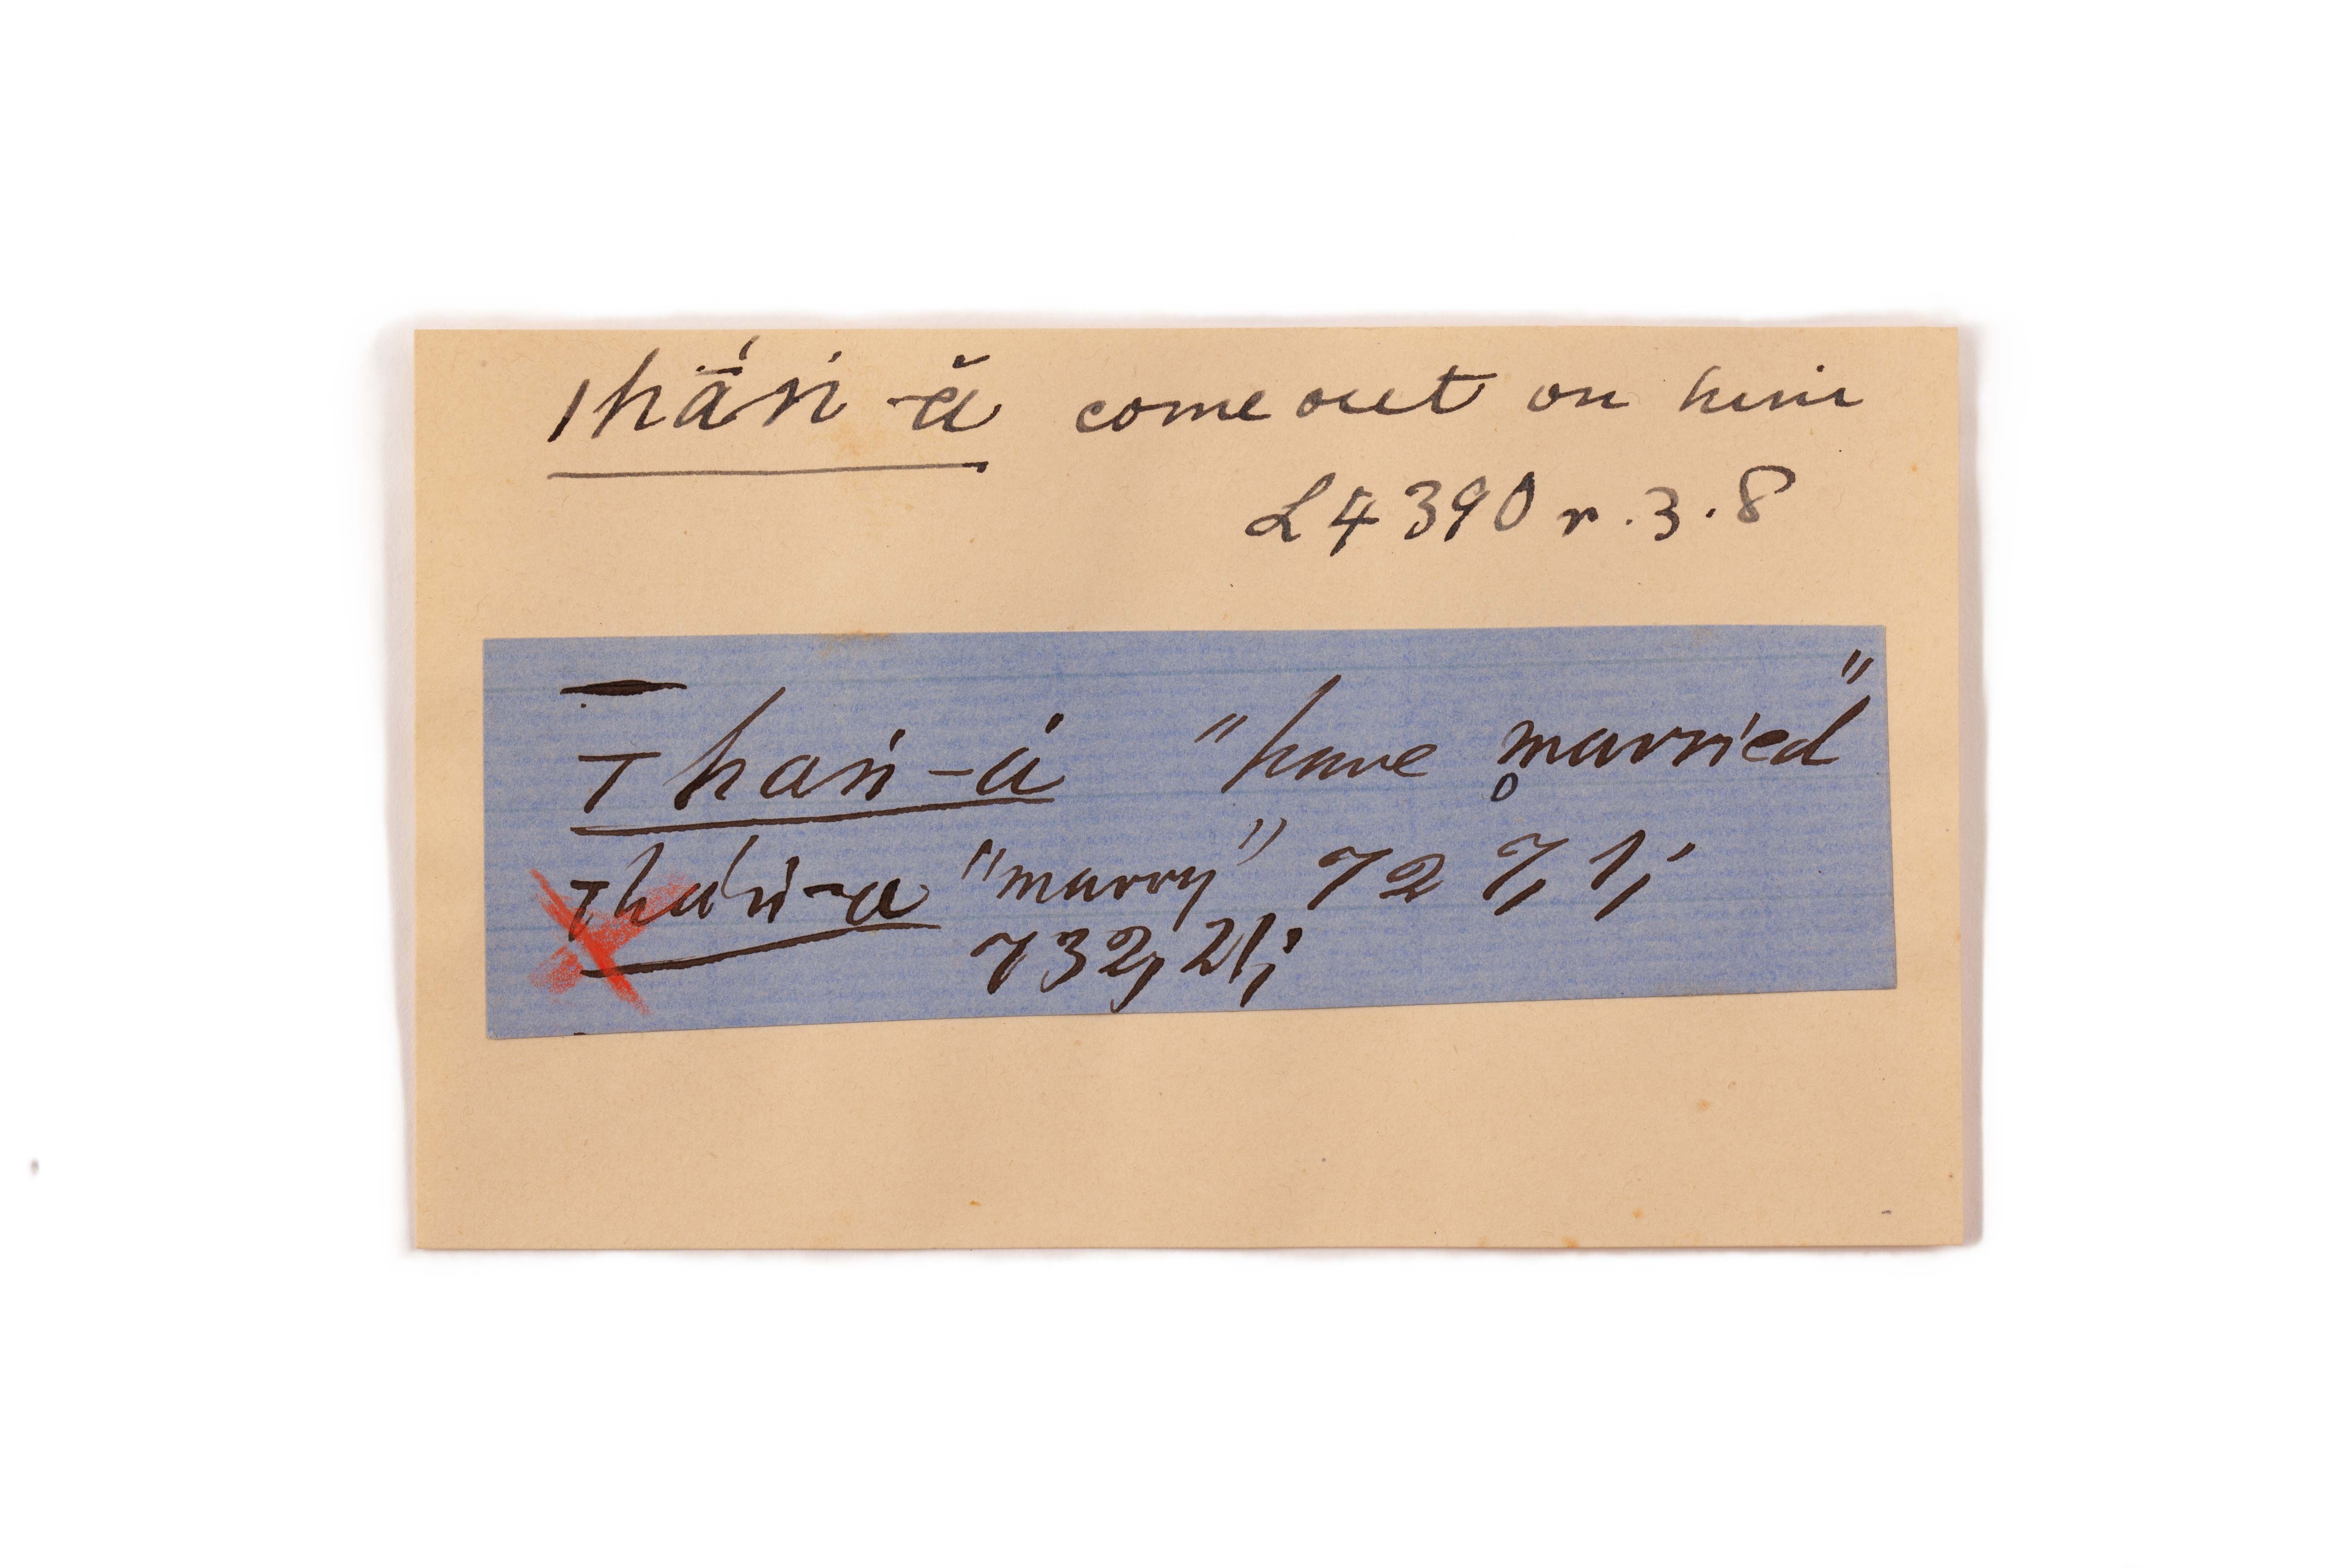 ıhā́ṅ-ă come out on him
L4390 r.3.8
Thaṅ-á "have married"
ıháṅ-a "marry" 727,1;
732,21;